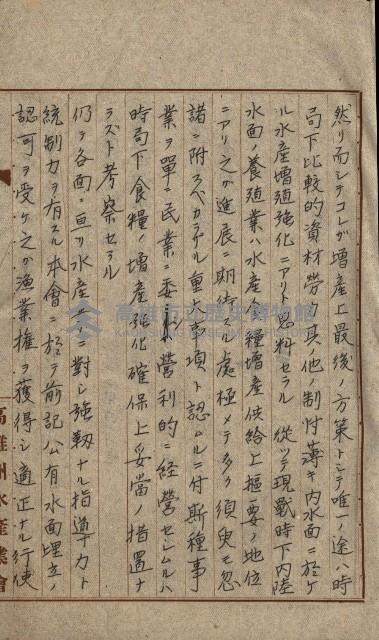 然リ而シテコレガ増産上最後ノ方策トシテ唯一ノ途ハ時
局下比較的資材勞力其ノ他ノ制肘薄キ内水面ニ於ケ
ル水産増殖強化ニアリト思料セラル 從ツテ現戰時下内陸
水面ノ養殖業ハ水産食糧増産供給上樞要ノ地位
ニアリ之ガ進展ニ期待スル處極メテ多ク須臾モ忽
諸ニ附スベカラザル重要事項ト認ムルニ付斯種事
業ヲ單ニ民業ニ委シ營利的ニ經營セシムルハ
時局下食糧ノ増産強化確保上妥當ノ措置ナ
ラズト考察セラル
仍テ各面ニ亘リ水産ニ對シ強靭ナル指導力ト
統制力ヲ有スル本會ニ於テ前記公有水面埋立ノ
認可ヲ受ケ之ガ漁業權ヲ獲得シ適正ナル行使
高雄州水産業會
高雄市立歷史博物館
KAOHSIUNG MUSEUM OF HISTORY